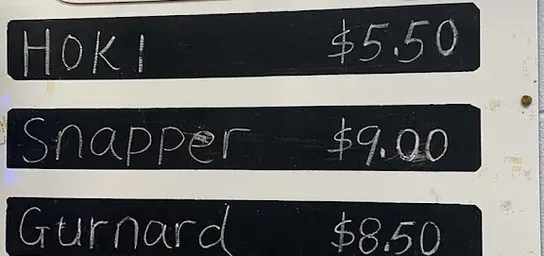 Hoki $5.50
Snapper $9.00
Gurnard $8.50